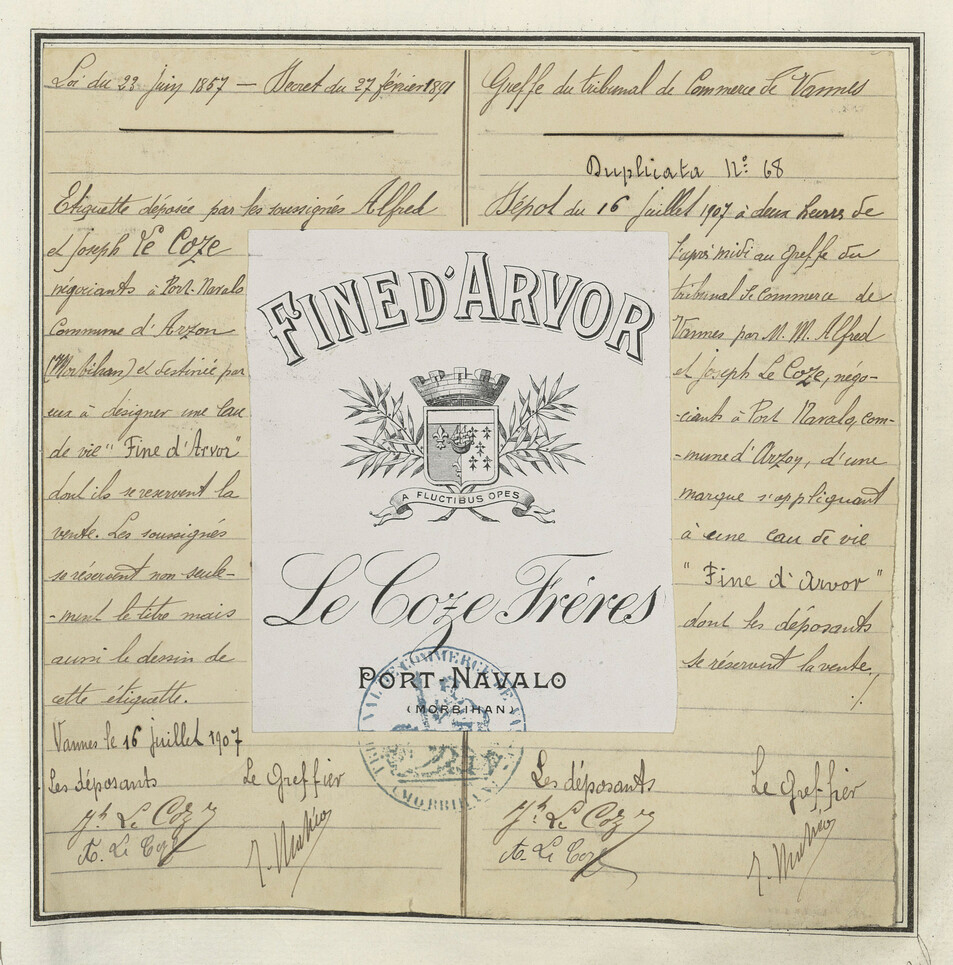 Loi du 23 juin 1857 — Décret du 27 février 1891
Etiquette déposée par les soussignés Alfred
et Joseph Le Coze
négociants à Port-Navalo
Commune d'Arzon
(Morbihan) et destinée par
eux à désigner une Eau
de vie "Fine d'Arvor"
dont ils se reservent la
vente. Les soussignés
se réservent non seule-
-ment le titre mais
aussi le dessin de
cette étiquette.
Vannes le 16 juillet 1907
Les déposants Le Greffier
Jh Le Coze
A. Le Coze
Greffe du tribunal de Commerce de Vannes
Duplicata N° 68
Dépôt du 16 juillet 1907 à deux heures de
l'après midi au greffe du
tribunal de Commerce de
Vannes par M.M. Alfred
et Joseph Le Coze, négo-
-ciants à Port Navalo, com-
-mune d'Arzon, d'une
marque s'appliquant
à une eau de vie
"Fine d'Arvor"
dont les déposants
se réservent la vente./.
Les déposants Le Greffier
Jh Le Coze
A. Le Coze
FINE D'ARVOR
A FLUCTIBUS OPES
Le Coze Frères
PORT-NAVALO
(MORBIHAN)
TRIBUNAL DE COMMERCE DE VANNES
(MORBIHAN)